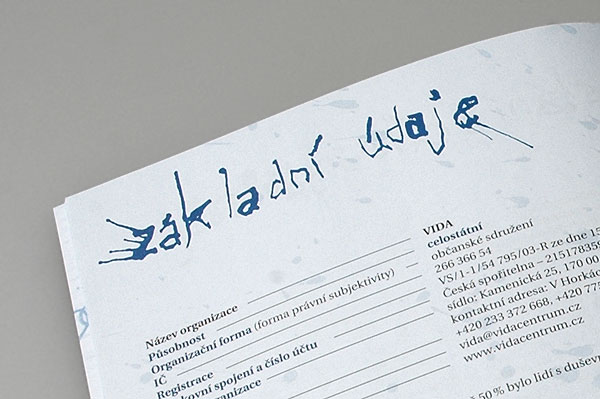 základní údaje
Název organizace
Působnost
Organizační forma (forma právní subjektivity)
IČ
Registrace
kovní spojení a číslo účtu
ganizace
VIDA
celostátní
občanské sdružení
266 366 54
VS/1-1/54 795/03-R ze dne 15
Česká spořitelna – 215178359
sídlo: Kamenická 25, 170 00
kontaktní adresa: V Horkác
+420 233 372 668, +420 775
vida@vidacentrum.cz
www.vidacentrum.cz
50 % bylo lidí s duševn